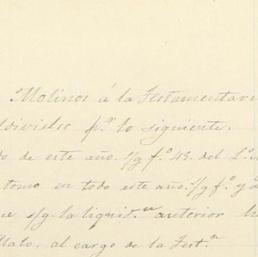 Molinos á la Testamentari
p.r lo siguiente.
o de este año. s/g f.o 43. del L.o
tomo en todo este año. s/g f.o y
ue s/g la liquid.on anterior h
Plato, al cargo de la Test.a